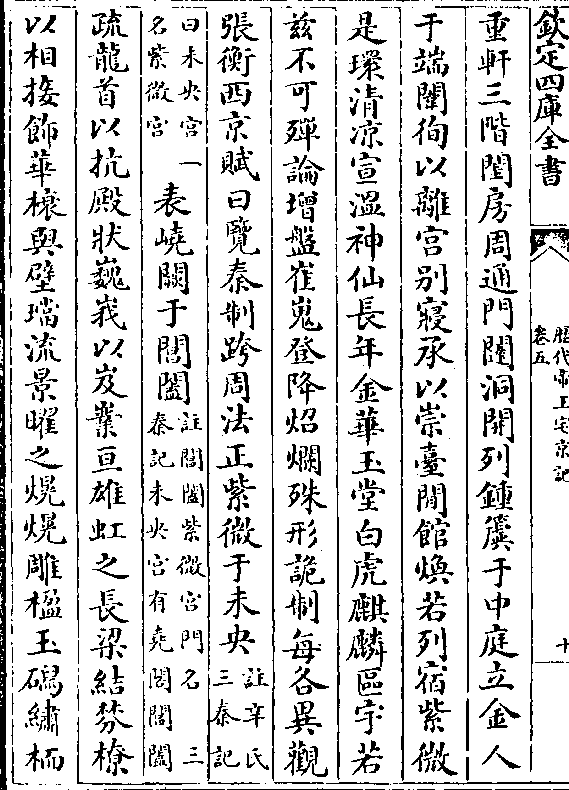 欽定四庫全書
歷代帝王宅京記
卷五
十
重軒三階閨房周通門闥洞開列鍾簴于中庭立金人
于端闈徇以離宮别寢承以崇臺閒館煥若列宿紫微
是環清凉宣溫神仙長年金華玉堂白虎麒麟區宇若
兹不可殫論增盤崔嵬登降炤爛殊形詭制每各異觀
張衡西京賦曰覽秦制跨周法正紫微于未央註辛氏三秦記
曰未央宮一名紫微宮表嶢闕于閶闔註閶闔紫微宮門名三秦記未央宮有堯閣閶闔
疏龍首以抗殿狀巍峩以岌嶪亘雄虹之長梁結棼橑
以相接飾華榱與璧璫流景曜之熀熀雕楹玉磶繡栭